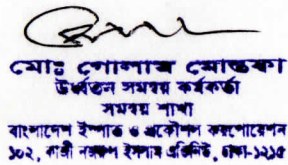 মোঃ গোলাম মোস্তফা
উর্ধ্বতন সমন্বয় কর্মকর্তা
সমন্বয় শাখা
বাংলাদেশ ইস্পাত ও প্রকৌশল করপোরেশন
১০২, কাজী নজরুল ইসলাম এভিনিউ, ঢাকা-১২১৫